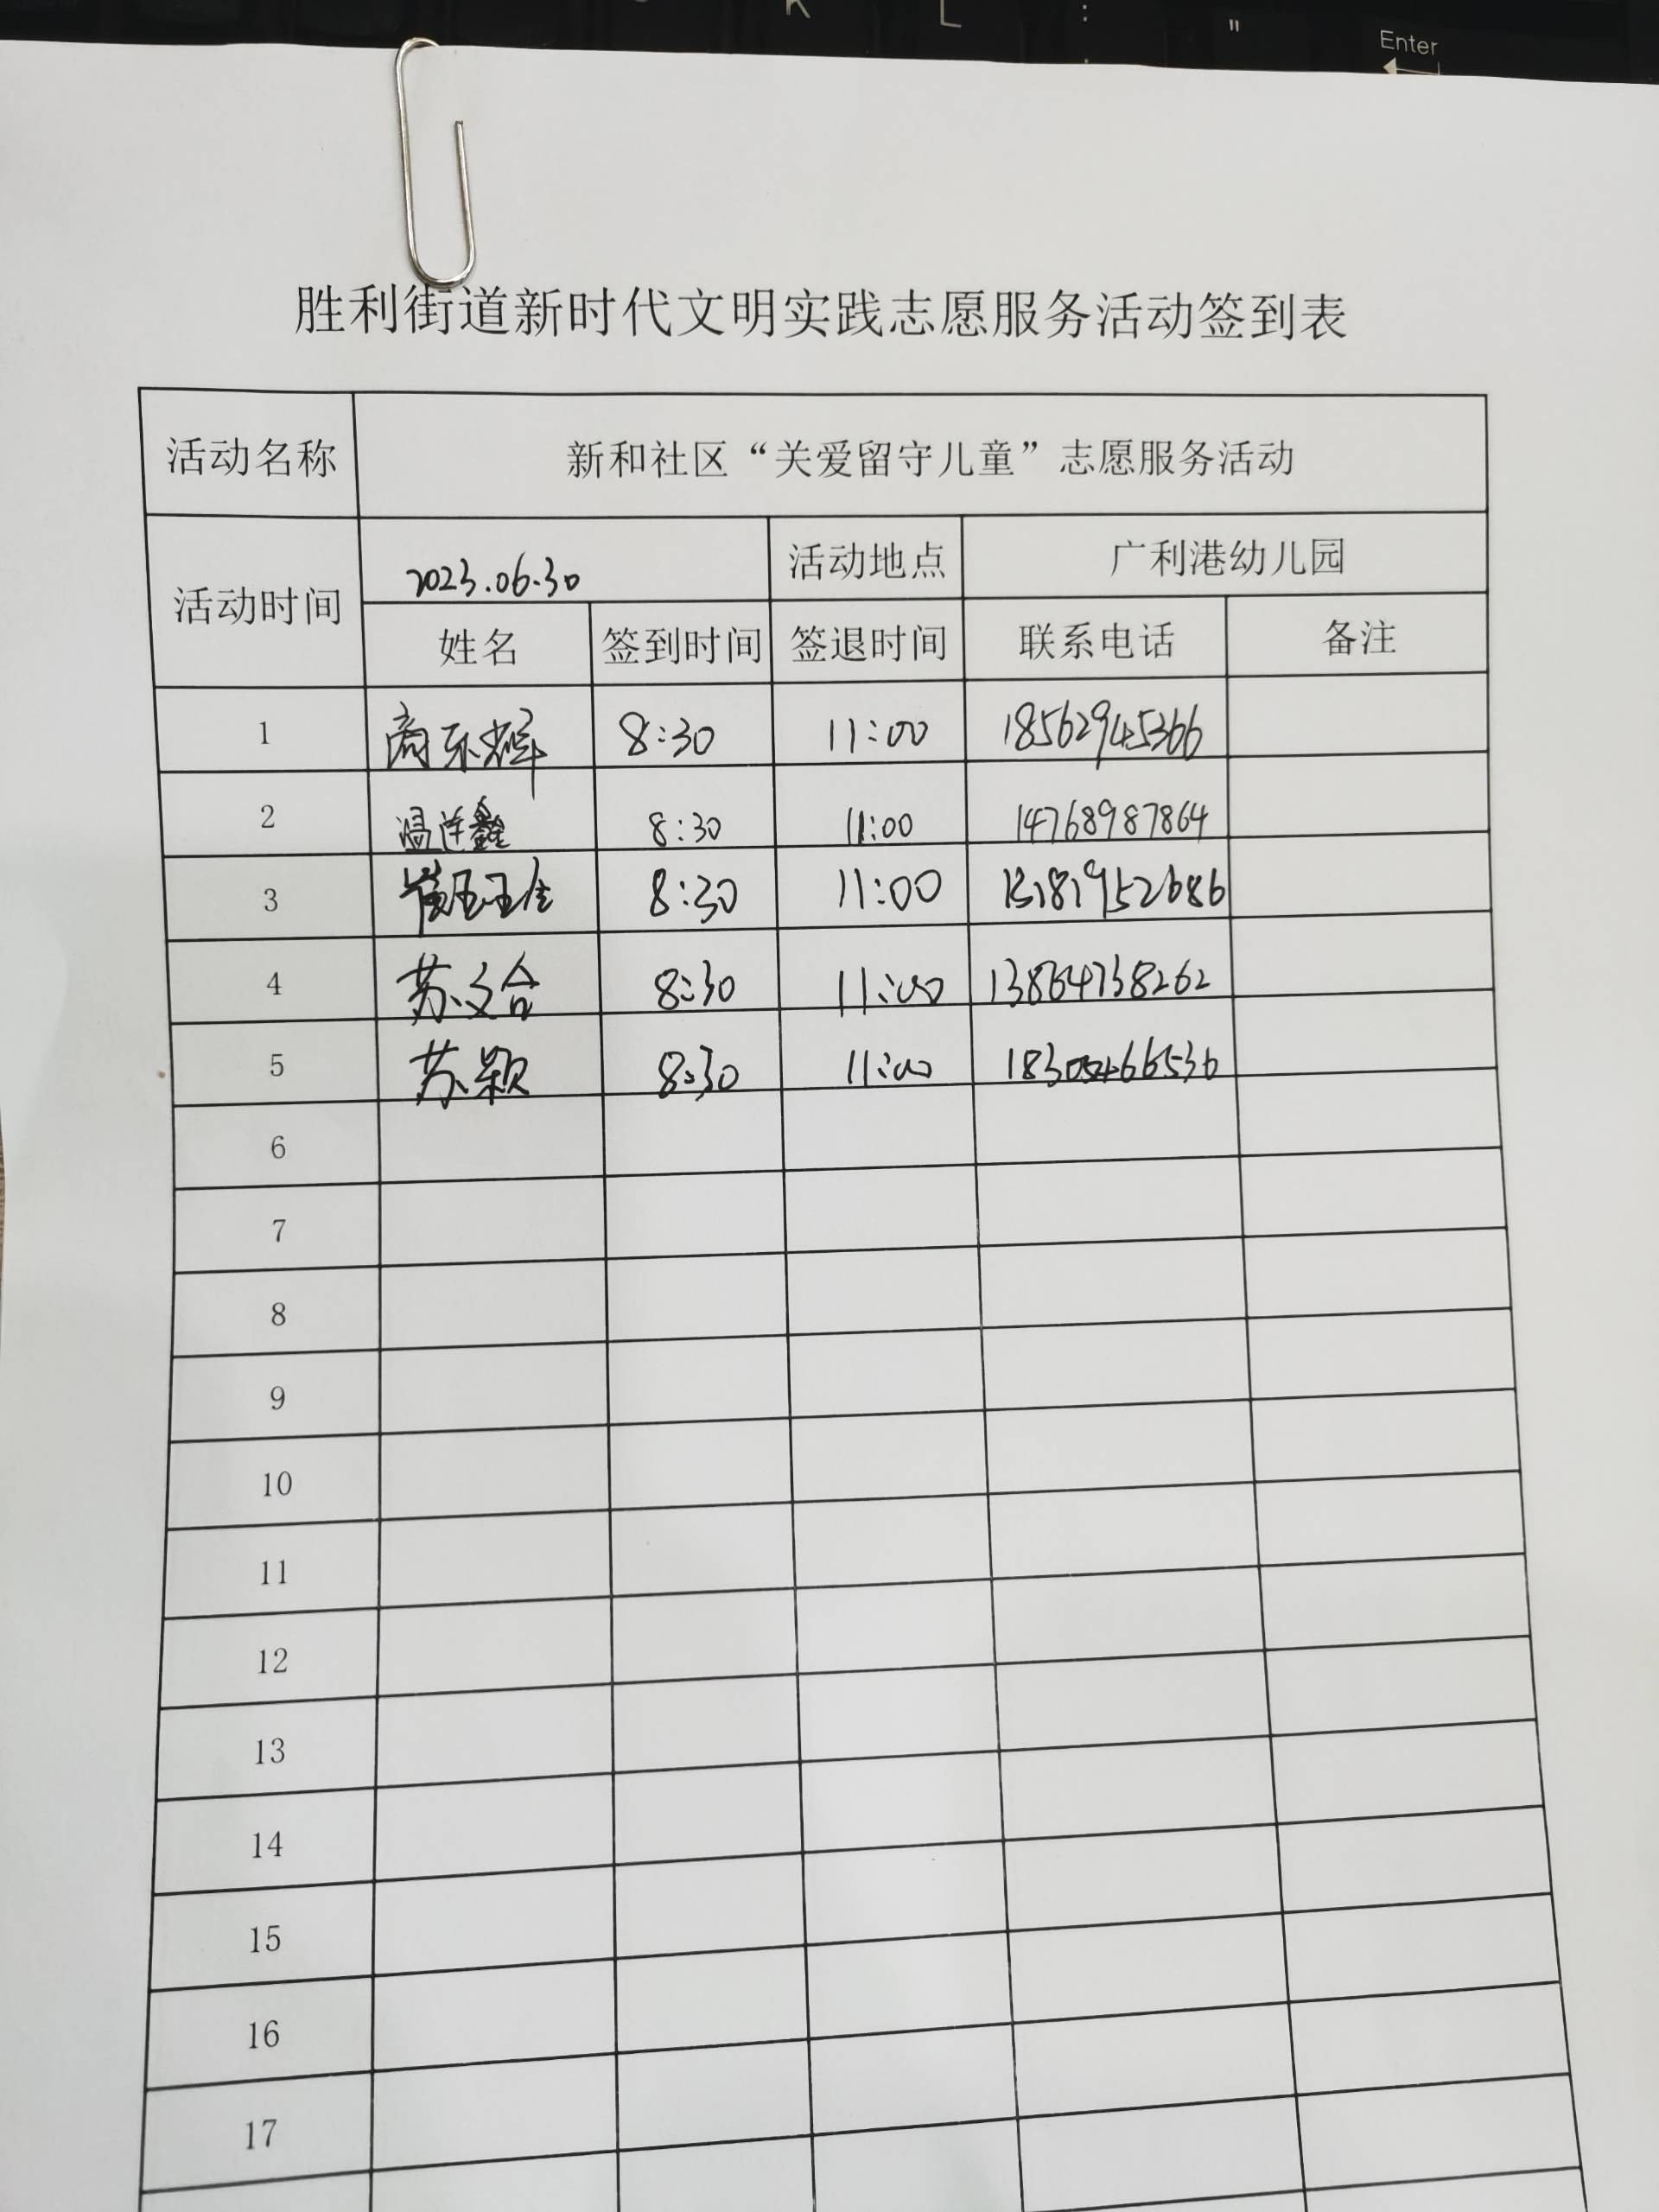 K L : "
Enter
胜利街道新时代文明实践志愿服务活动签到表
活动名称 新和社区“关爱留守儿童”志愿服务活动
活动时间 2023.06.30 活动地点 广利港幼儿园
姓名 签到时间 签退时间 联系电话 备注
1 商乐辉 8:30 11:00 18562945366
2 温连鑫 8:30 11:00 14768987864
3 8:30 11:00
4 苏文合 8:30 11:00 13864738262
5 苏颖 8:30 11:00
6
7
8
9
10
11
12
13
14
15
16
17